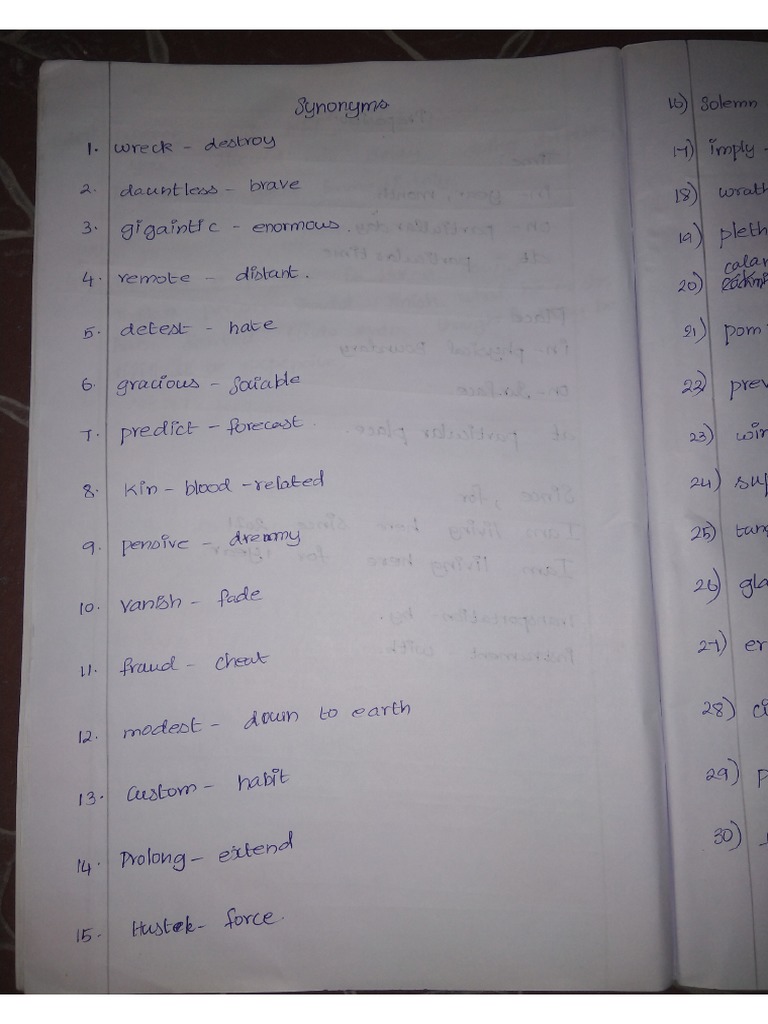 Synonyms
1. wreck - destroy
2. dauntless - brave
3. gigaintic - enormous.
4. remote - distant.
5. detest - hate
6. gracious - Soiable
7. predict - forecast.
8. Kin - blood - related
9. pensive - dremmy
10. vanish - fade
11. fraud - cheat
12. modest - down to earth
13. Custom - habit
14. Prolong - extend
15. - force.
16) Solemn
17) imply -
18) wrath
19) pleth
calar
20)
21) pom
22) prev
23) win
24) sup
25) tang
26) gla
27) er
28) ci
29) p
30)